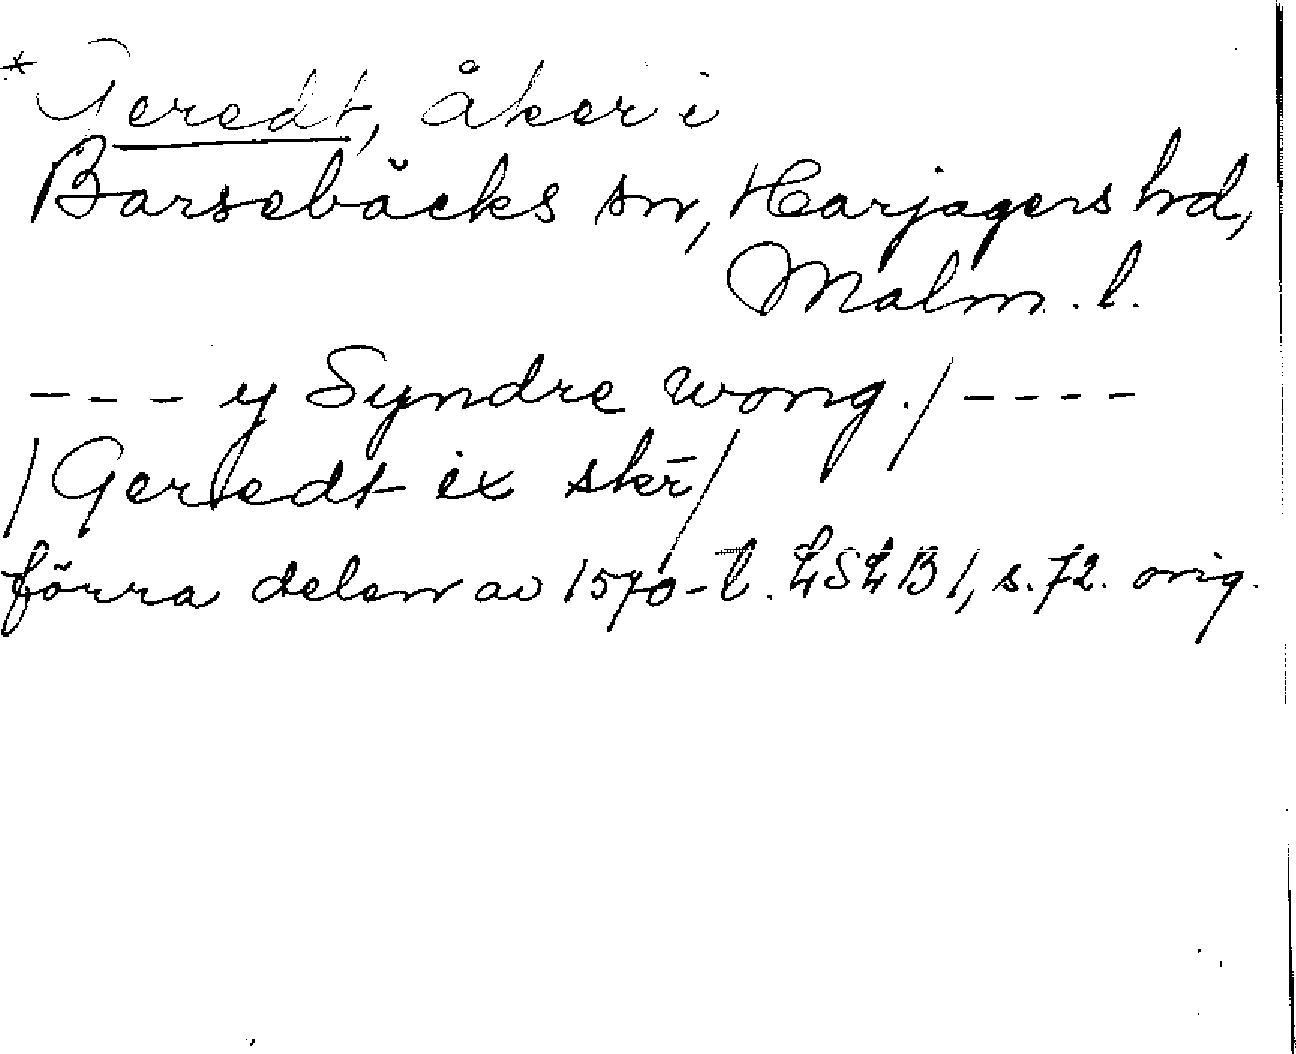 *Geredt, åker i
Barsebäcks sn, Harjagers hd,
Malm. l.
--- y Syndre wong./ ----
/Geredt ix skr̄/
förra delen av 1570-t. LSLB1, s. 72. orig.